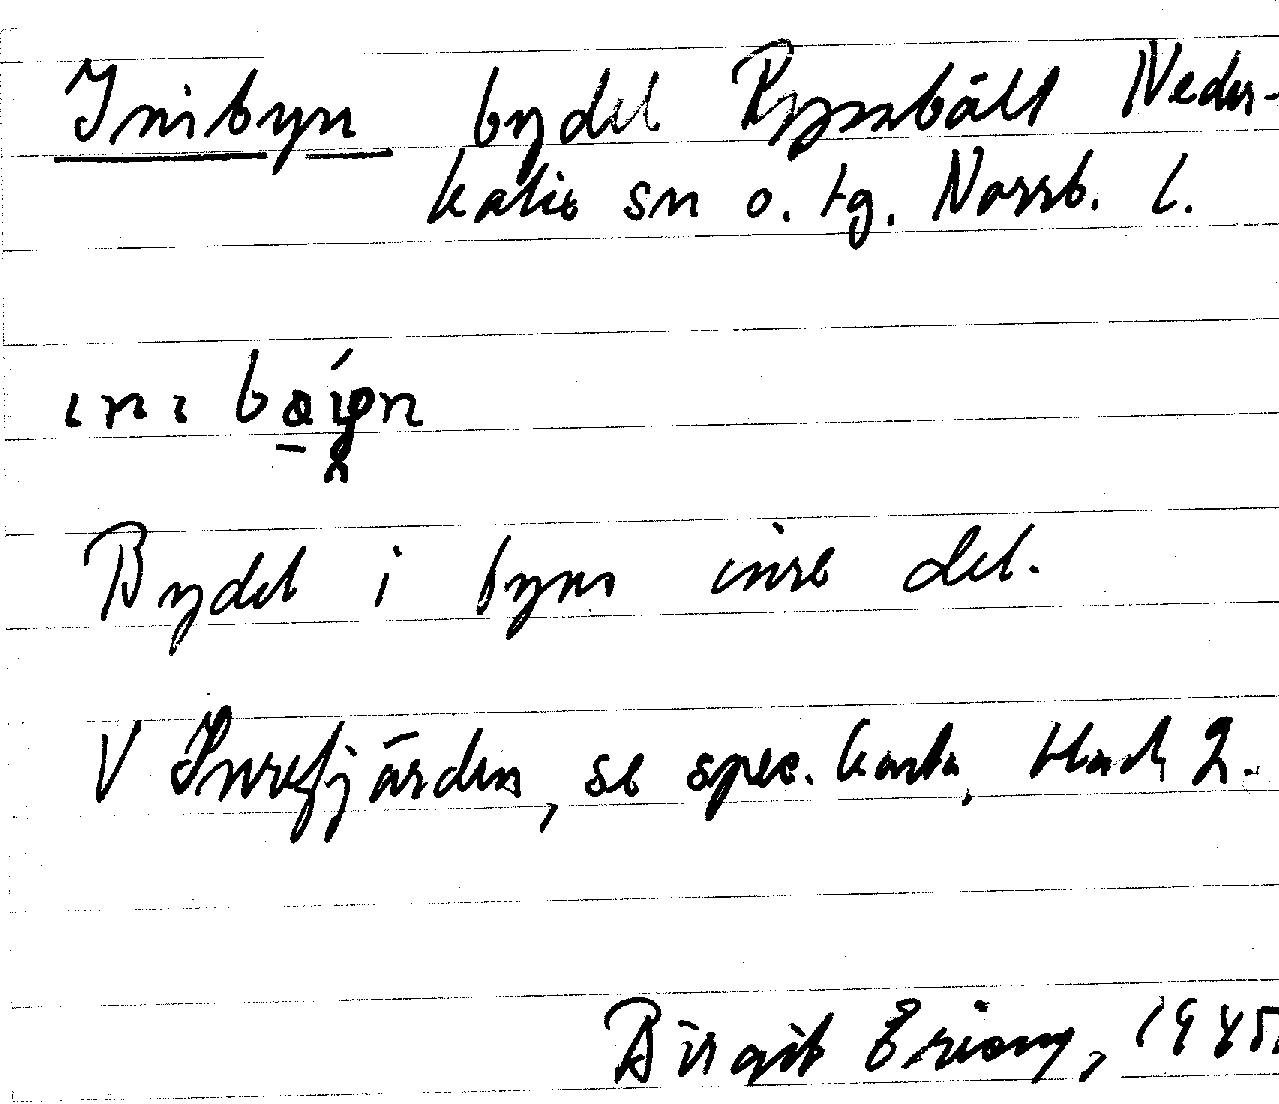 Inibyn bydel Ryssbält Neder-
kalix sn o. tg. Norrb. l.
Bydel i byns inre del.
V Inrefjärden, se spec. karta, blad 2.
Birgit 1945.